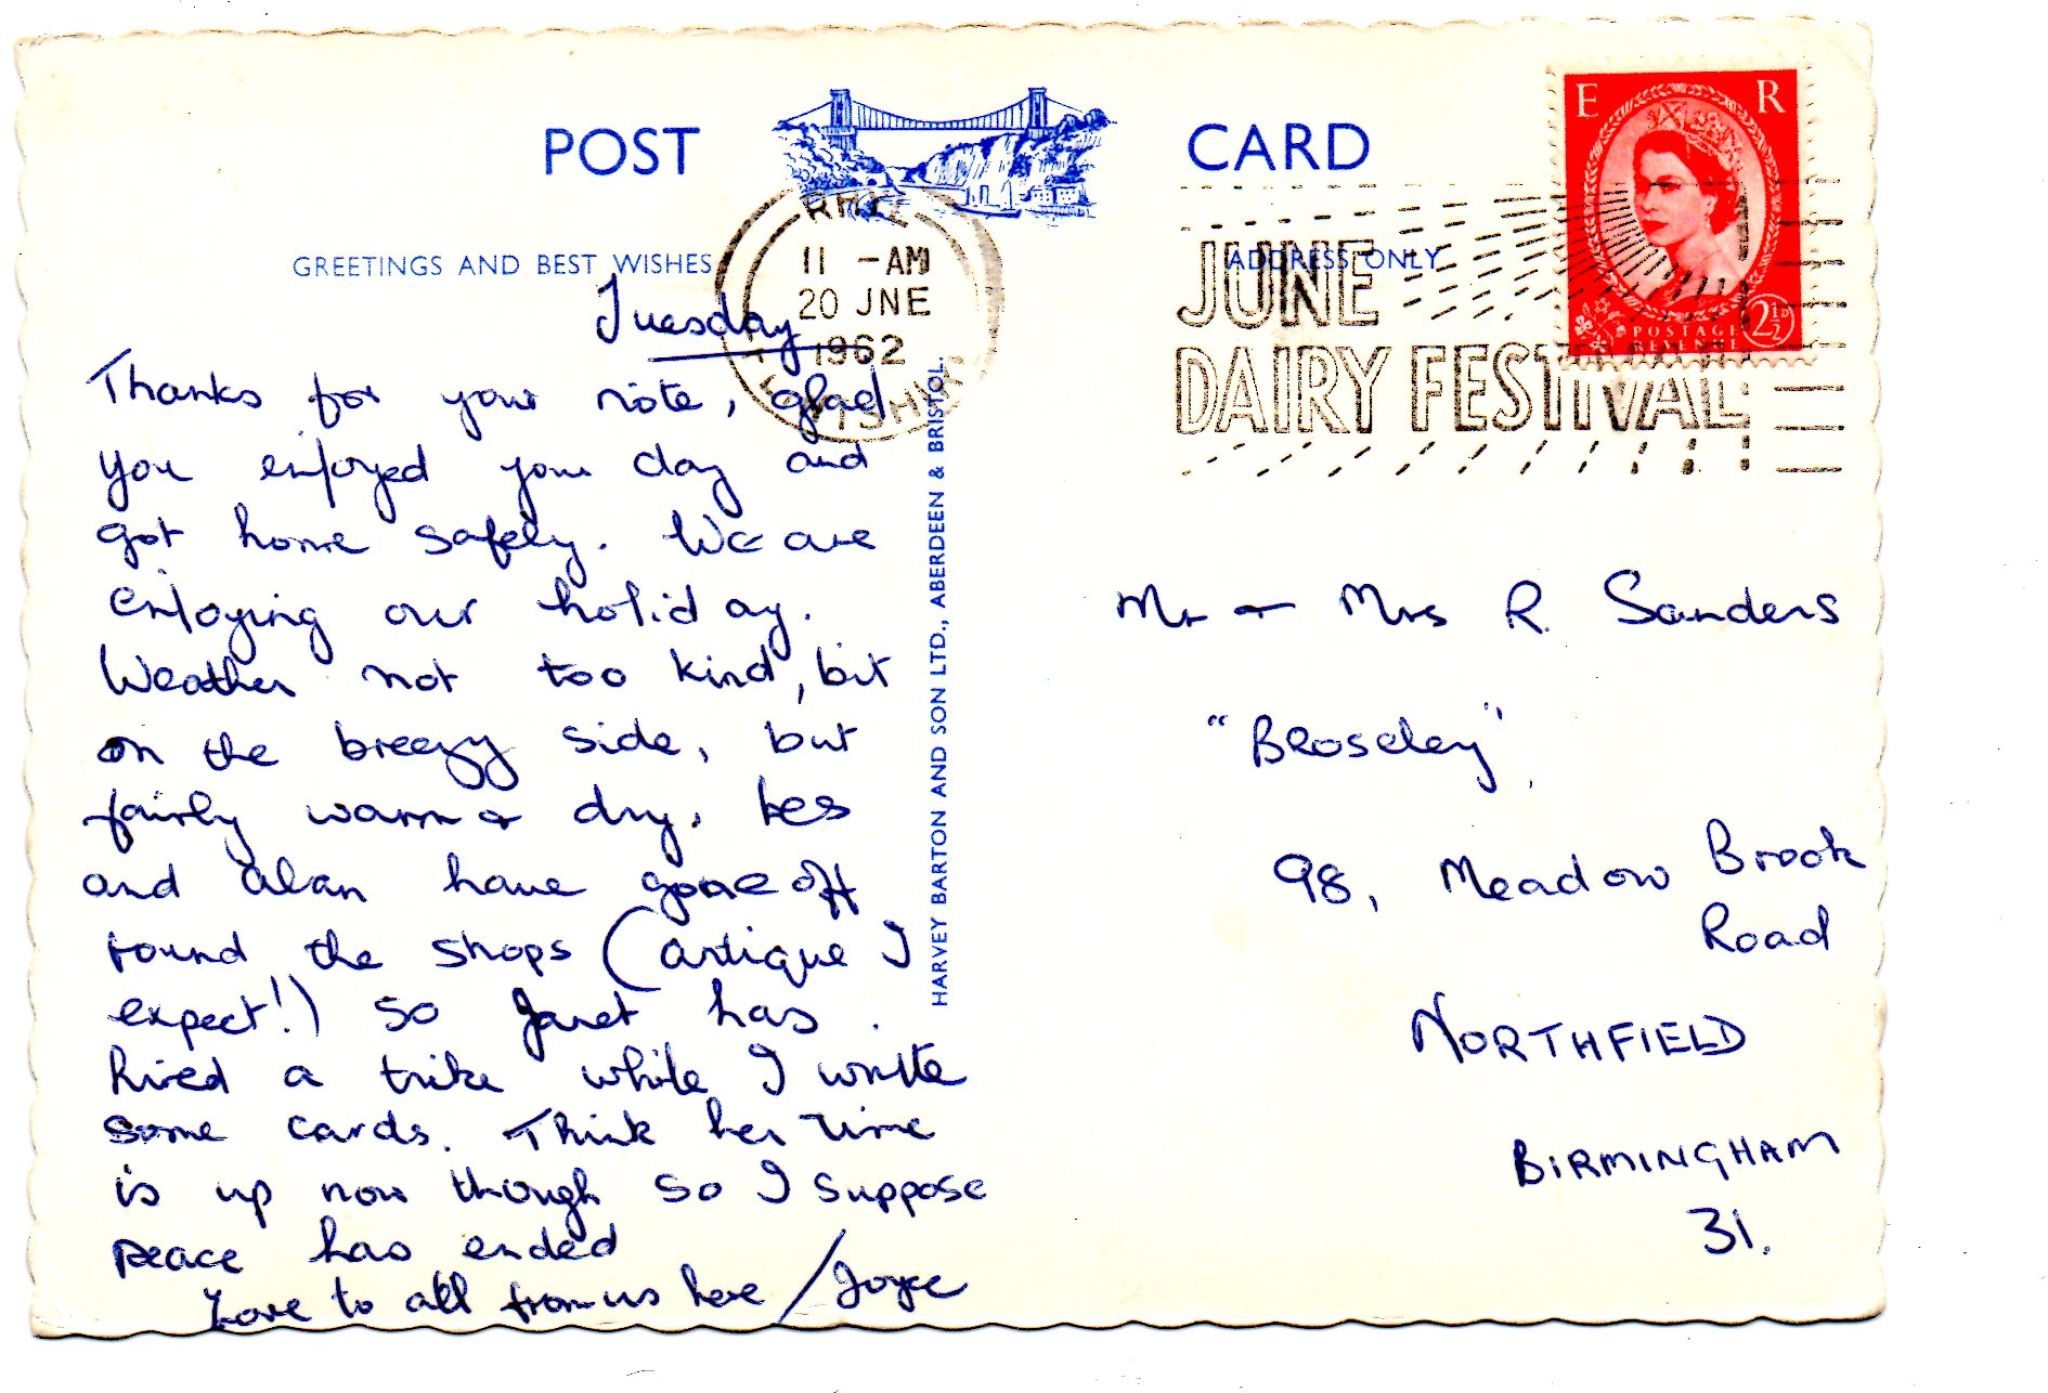 POST CARD
GREETINGS AND BEST WISHES
ADDRESS ONLY
RHYL
11 - AM
20 JNE
1962
FLINTSHIRE
JUNE
DAIRY FESTIVAL
E R
POSTAGE
REVENUE
2½D
Tuesday
Thanks for your note, glad
you enjoyed your day and
got home safely. We are
enjoying our holiday.
Weather not too kind, bit
on the breezy side, but
fairly warm & dry. Les
and Alan have gone off
round the shops (antique I
expect!) so Janet has
hired a trike while I write
some cards. Think her time
is up now though so I suppose
peace has ended
Love to all from us here / Joyce
HARVEY BARTON AND SON LTD., ABERDEEN & BRISTOL.
Mr & Mrs R. Sanders
"Broseley",
98, Meadow Brook
Road
NORTHFIELD
BIRMINGHAM
31.